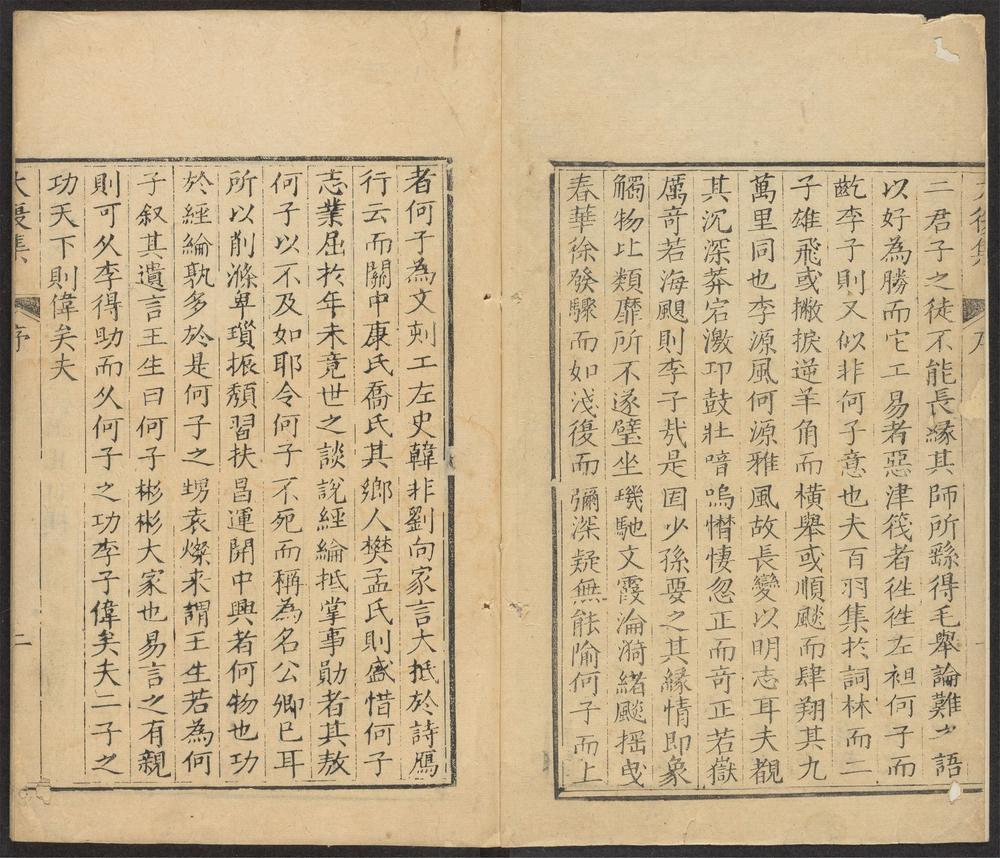 二君子之徒不能長緣其師所繇得毛舉論難少語
以好為勝而它工易者惡津筏者徃徃左袒何子而
齕李子則又似非何子意也夫百羽集於詞林而二
子雄飛或撇捩逆羊角而橫舉或順颷而肆翔其九
萬里同也李源風何源雅風故長變以明志耳夫覩
其沉深莽宕激卭鼓壯喑嗚憯悽忽正而奇正若嶽
厲奇若海颶則李子哉是固少孫要之其緣情即象
觸物比類靡所不遂璧坐璣馳文霞淪漪緒颷搖曳
春華徐發驟而如淺復而彌深疑無能隃何子而上
者何子為文刻工左史韓非劉向家言大抵於詩鴈
行云而關中康氏喬氏其鄉人樊孟氏則盛惜何子
志業屈於年未竟世之談說經綸抵掌事勛者其敖
何子以不及如耶令何子不死而稱為名公卿已耳
所以削滌卑瑣振頹習扶昌運開中興者何物也功
於經綸孰多於是何子之甥袁燦來謂王生若為何
子叙其遺言王生曰何子彬彬大家也易言之有親
則可久李得助而久何子之功李子偉矣夫二子之
功天下則偉矣夫
大復集
序
二